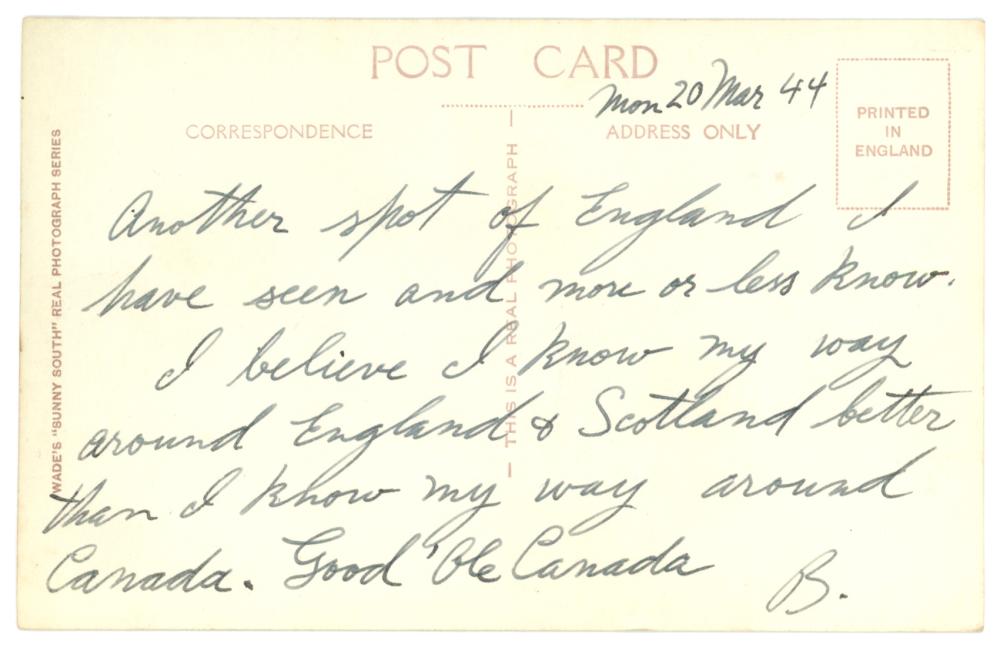 POST CARD
Mon 20 Mar 44
CORRESPONDENCE
ADDRESS ONLY
PRINTED
IN
ENGLAND
WADE'S "SUNNY SOUTH" REAL PHOTOGRAPH SERIES
THIS IS A REAL PHOTOGRAPH
Another spot of England I
have seen and more or less know.
I believe I know my way
around England & Scotland better
than I know my way around
Canada. Good 'Ole Canada
B.